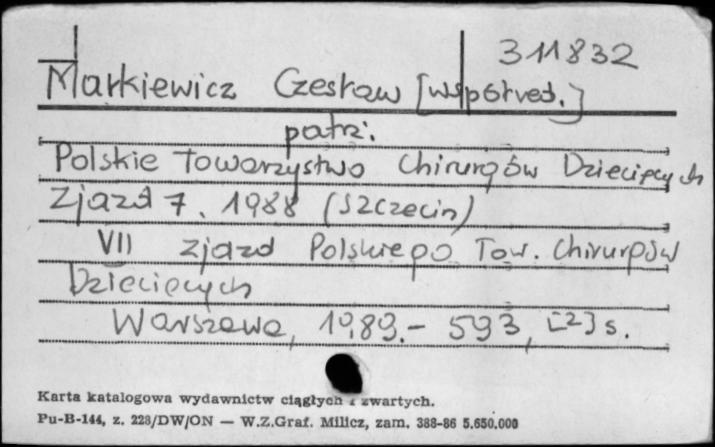 311832
Markiewicz Czesław [współred.]
patrz:
Polskie Towarzystwo Chirurgów Dziecięcych
Zjazd 7. 1988 (Szczecin)
VII zjazd Polskiego Tow. Chirurgów
Dziecięcych
Warszawa, 1989.- 593, [2] s.
Karta katalogowa wydawnictw ciągłych i zwartych.
Pu-B-144, z. 228/DW/ON — W.Z.Graf. Milicz, zam. 388-86 5.650.000